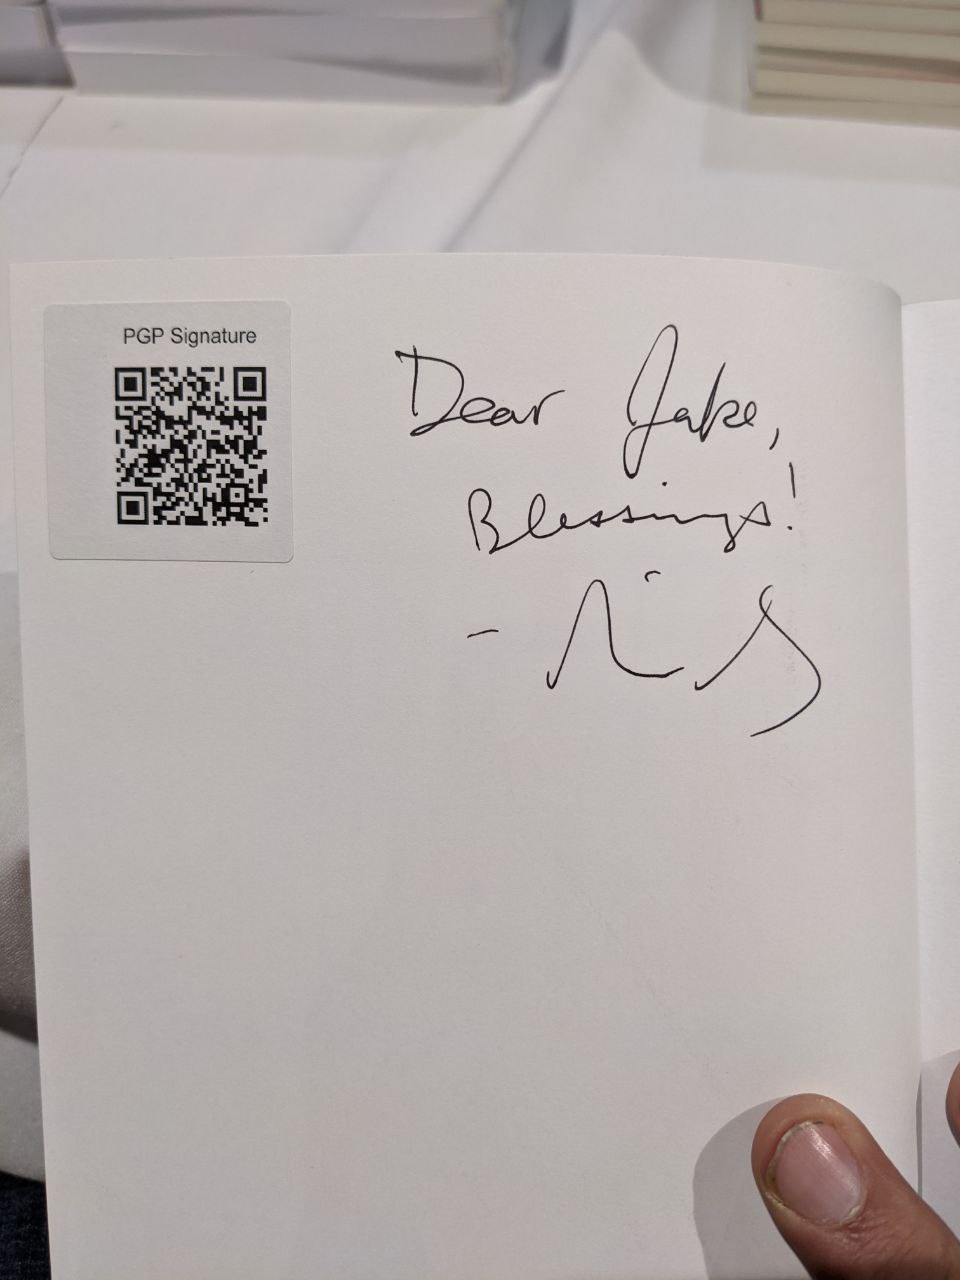 PGP Signature
Dear Jake,
Blessings!